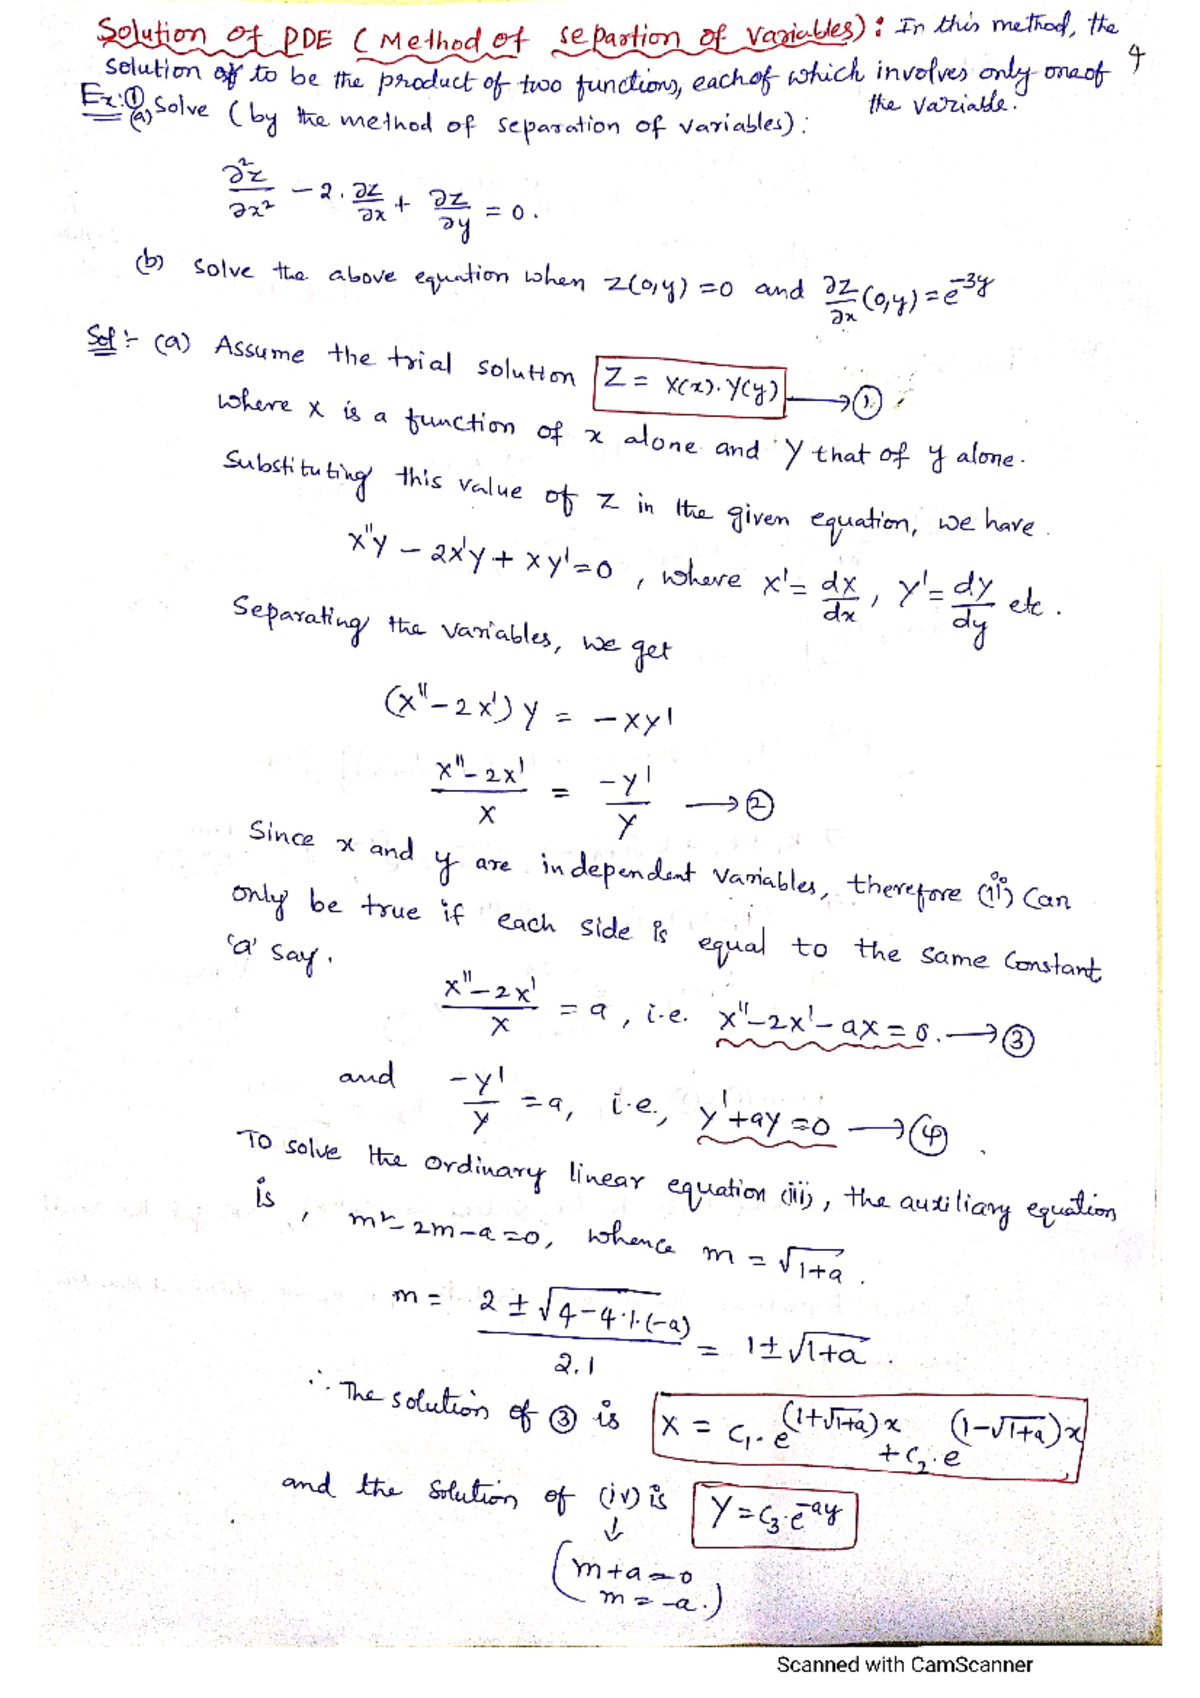 Solution of PDE (Method of separtion of variables): In this method, the
solution of to be the product of two functions, each of which involves only one of
the variable.
4
Ex:① (a) Solve (by the method of separation of variables):
∂²z/∂x² - 2.∂z/∂x + ∂z/∂y = 0.
(b) solve the above equation when z(0,y) = 0 and ∂z/∂x (0,y) = e^-3y
Sol:- (a) Assume the trial solution Z = X(x).Y(y) → ①
where X is a function of x alone and Y that of y alone.
Substituting this value of Z in the given equation, we have.
X"Y - 2X'Y + XY' = 0, where X' = dX/dx, Y' = dY/dy etc.
Separating the variables, we get
(X" - 2X')Y = -XY'
X" - 2X'/X = -Y'/Y → ②
Since x and y are independent variables, therefore (ii) can
only be true if each side is equal to the same constant
'a' say.
X" - 2X'/X = a, i.e. X" - 2X' - aX = 0. → ③
and -Y'/Y = a, i.e., Y' + aY = 0 → ④.
To solve the ordinary linear equation (iii), the auxiliary equation
is, m² - 2m - a = 0, whence m = √1+a.
m = 2 ± √4-4.1.(-a)/2.1 = 1 ± √1+a.
∴ The solution of ③ is X = C₁.e^(1+√1+a)x + C₂.e^(1-√1+a)x
and the solution of (iv) is Y = C₃.e^-ay
↓
(m + a = 0
m = -a.)
Scanned with CamScanner